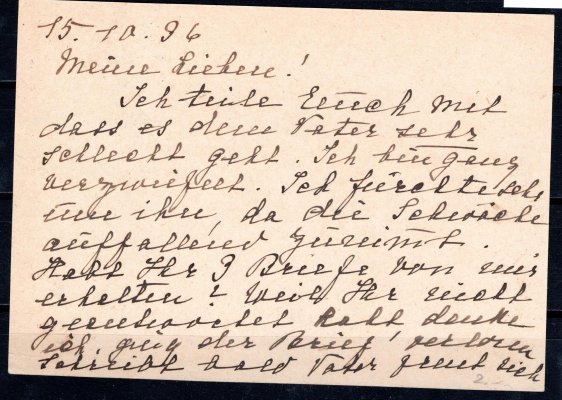 15.10.36
Meine Lieben!
Ich teile Euch mit
dass es dem Vater sehr
schlecht geht. Ich bin ganz
verzweifelt. Ich fürchte sehr
um ihn, da die Schwäche
auffallend zunimt.
Habt Ihr 3 Briefe von mir
erhalten? Weil Ihr nicht
geantwortet habt denke
ich, ging der Brief verloren
schreibt bald Vater freut sich
2.-